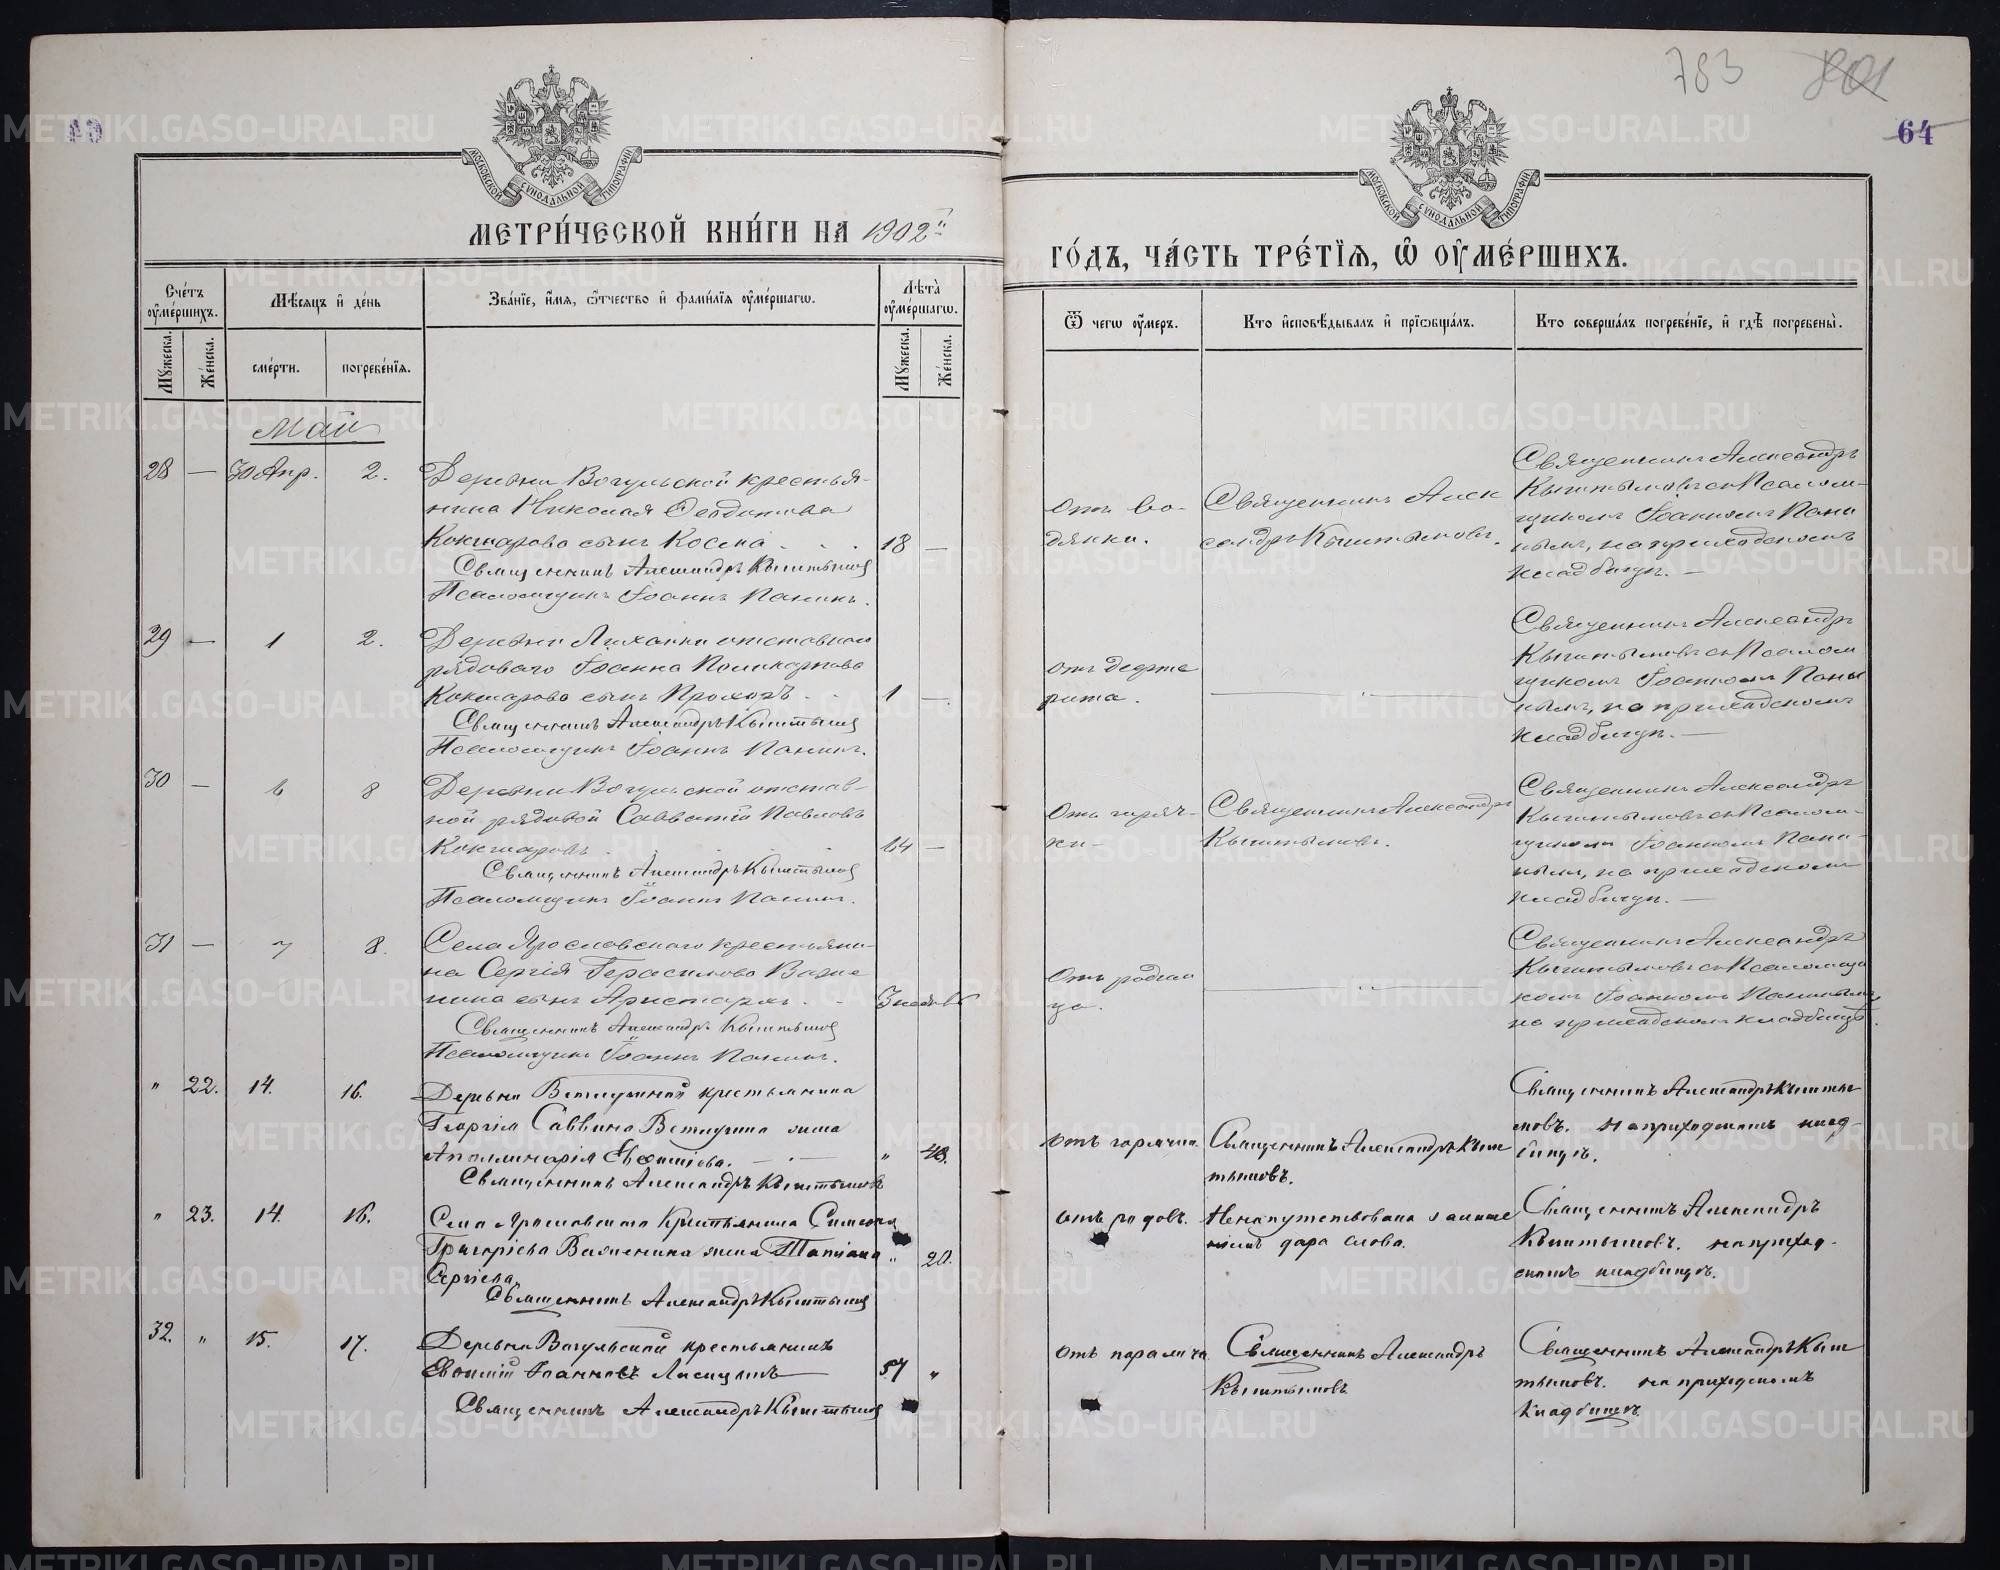 783
801
64
МОСКОВСКОЙ СѴНОДАЛЬНОЙ ТИПОГРАФІИ
МОСКОВСКОЙ СѴНОДАЛЬНОЙ ТИПОГРАФІИ
МЕТРИ́ЧЕСКОЙ КНИ́ГИ НА 1902й
ГО́ДЪ, ЧА́СТЬ ТРЕ́ТІЯ, Ѡ ОУМЕ́РШИХЪ.
Сче́тъ оуме́ршихъ.
Мѣ́сяцъ и де́нь
Зва́ніе, и́мя, ѻ҆́тчество и фами́лія оуме́ршагѡ.
Лѣ́та оуме́ршагѡ.
Ѿ чегѡ оу́меръ.
Кто и҆сповѣ́дывалъ и прїѡбща́лъ.
Кто соверша́лъ погребе́ніе, и гдѣ погребены̀.
Му́жеска.
Же́нска.
сме́рти.
погребе́нїя.
Му́жеска.
Же́нска.
Май
28 — 30 Апр. 2.
Деревни Вогульской крестья-
нина Николая Феодотова
Кокшарова сынъ Косма 18 —
Священникъ Александръ Кыштымовъ
Псаломщикъ Іоаннъ Панинъ.
Отъ во-
дянки.
Священникъ Алек
сандръ Кыштымовъ.
Священникъ Александръ
Кыштымовъ съ Псалом-
щикомъ Іоанномъ Пани
нымъ, на приходскомъ
кладбищѣ. —
29 — 1 2.
Деревни Ляханки отставнаго
рядового Іоанна Поликарпова
Кокшарова сынъ Прохоръ 1 —
Священникъ Александръ Кыштымовъ
Псаломщикъ Іоаннъ Панинъ.
отъ дифте
рита.
Священникъ Александръ
Кыштымовъ съ Псалом
щикомъ Іоанномъ Пани
нымъ, на приходскомъ
кладбищѣ. —
30 — 6 8
Деревни Вогульской отстав-
ной рядовой Савватій Павловъ
Кокшаровъ 14 —
Священникъ Александръ Кыштымовъ
Псаломщикъ Іоаннъ Панинъ.
Отъ горяч-
ки —
Священникъ Александръ
Кыштымовъ.
Священникъ Александръ
Кыштымовъ съ Псалом-
щикомъ Іоанномъ Пани-
нымъ, на приходскомъ
кладбищѣ. —
31 — 7 8.
Села Ярославскаго крестьяни-
на Сергія Герасимова Важе
нина сынъ Аристархъ 3 недѣль
Священникъ Александръ Кыштымовъ
Псаломщикъ Іоаннъ Панинъ.
Отъ родим
ца.
Священникъ Александръ
Кыштымовъ съ Псаломщи
комъ Іоанномъ Панинымъ,
на приходскомъ кладбищѣ.
" 22. 14. 16.
Деревни Ветлугиной крестьянина
Георгія Саввина Ветлугина жена
Аполлинарія Евѳиміева. " 48.
Священникъ Александръ Кыштымовъ
отъ горячки.
Священникъ Александръ Кыш
тымовъ.
Священникъ Александръ Кышты
мовъ. на приходскомъ клад-
бищѣ.
" 23. 14. 16.
Села Ярославскаго Крестьянина Симеона
Григоріева Важенина жена Татіана " 20.
Сергіева.
Священникъ Александръ Кыштымовъ
отъ родовъ.
Не напутствована за лише
ніемъ дара слова.
Священникъ Александръ
Кыштымовъ. на приход-
скомъ кладбищѣ.
32. " 15. 17.
Деревни Вогульской крестьянинъ
Евѳимій Іоанновъ Лисицынъ 57 "
Священникъ Александръ Кыштымовъ
отъ паралича
Священникъ Александръ
Кыштымовъ
Священникъ Александръ Кыш
тымовъ. на приходскомъ
кладбищѣ.
METRIKI.GASO-URAL.RU